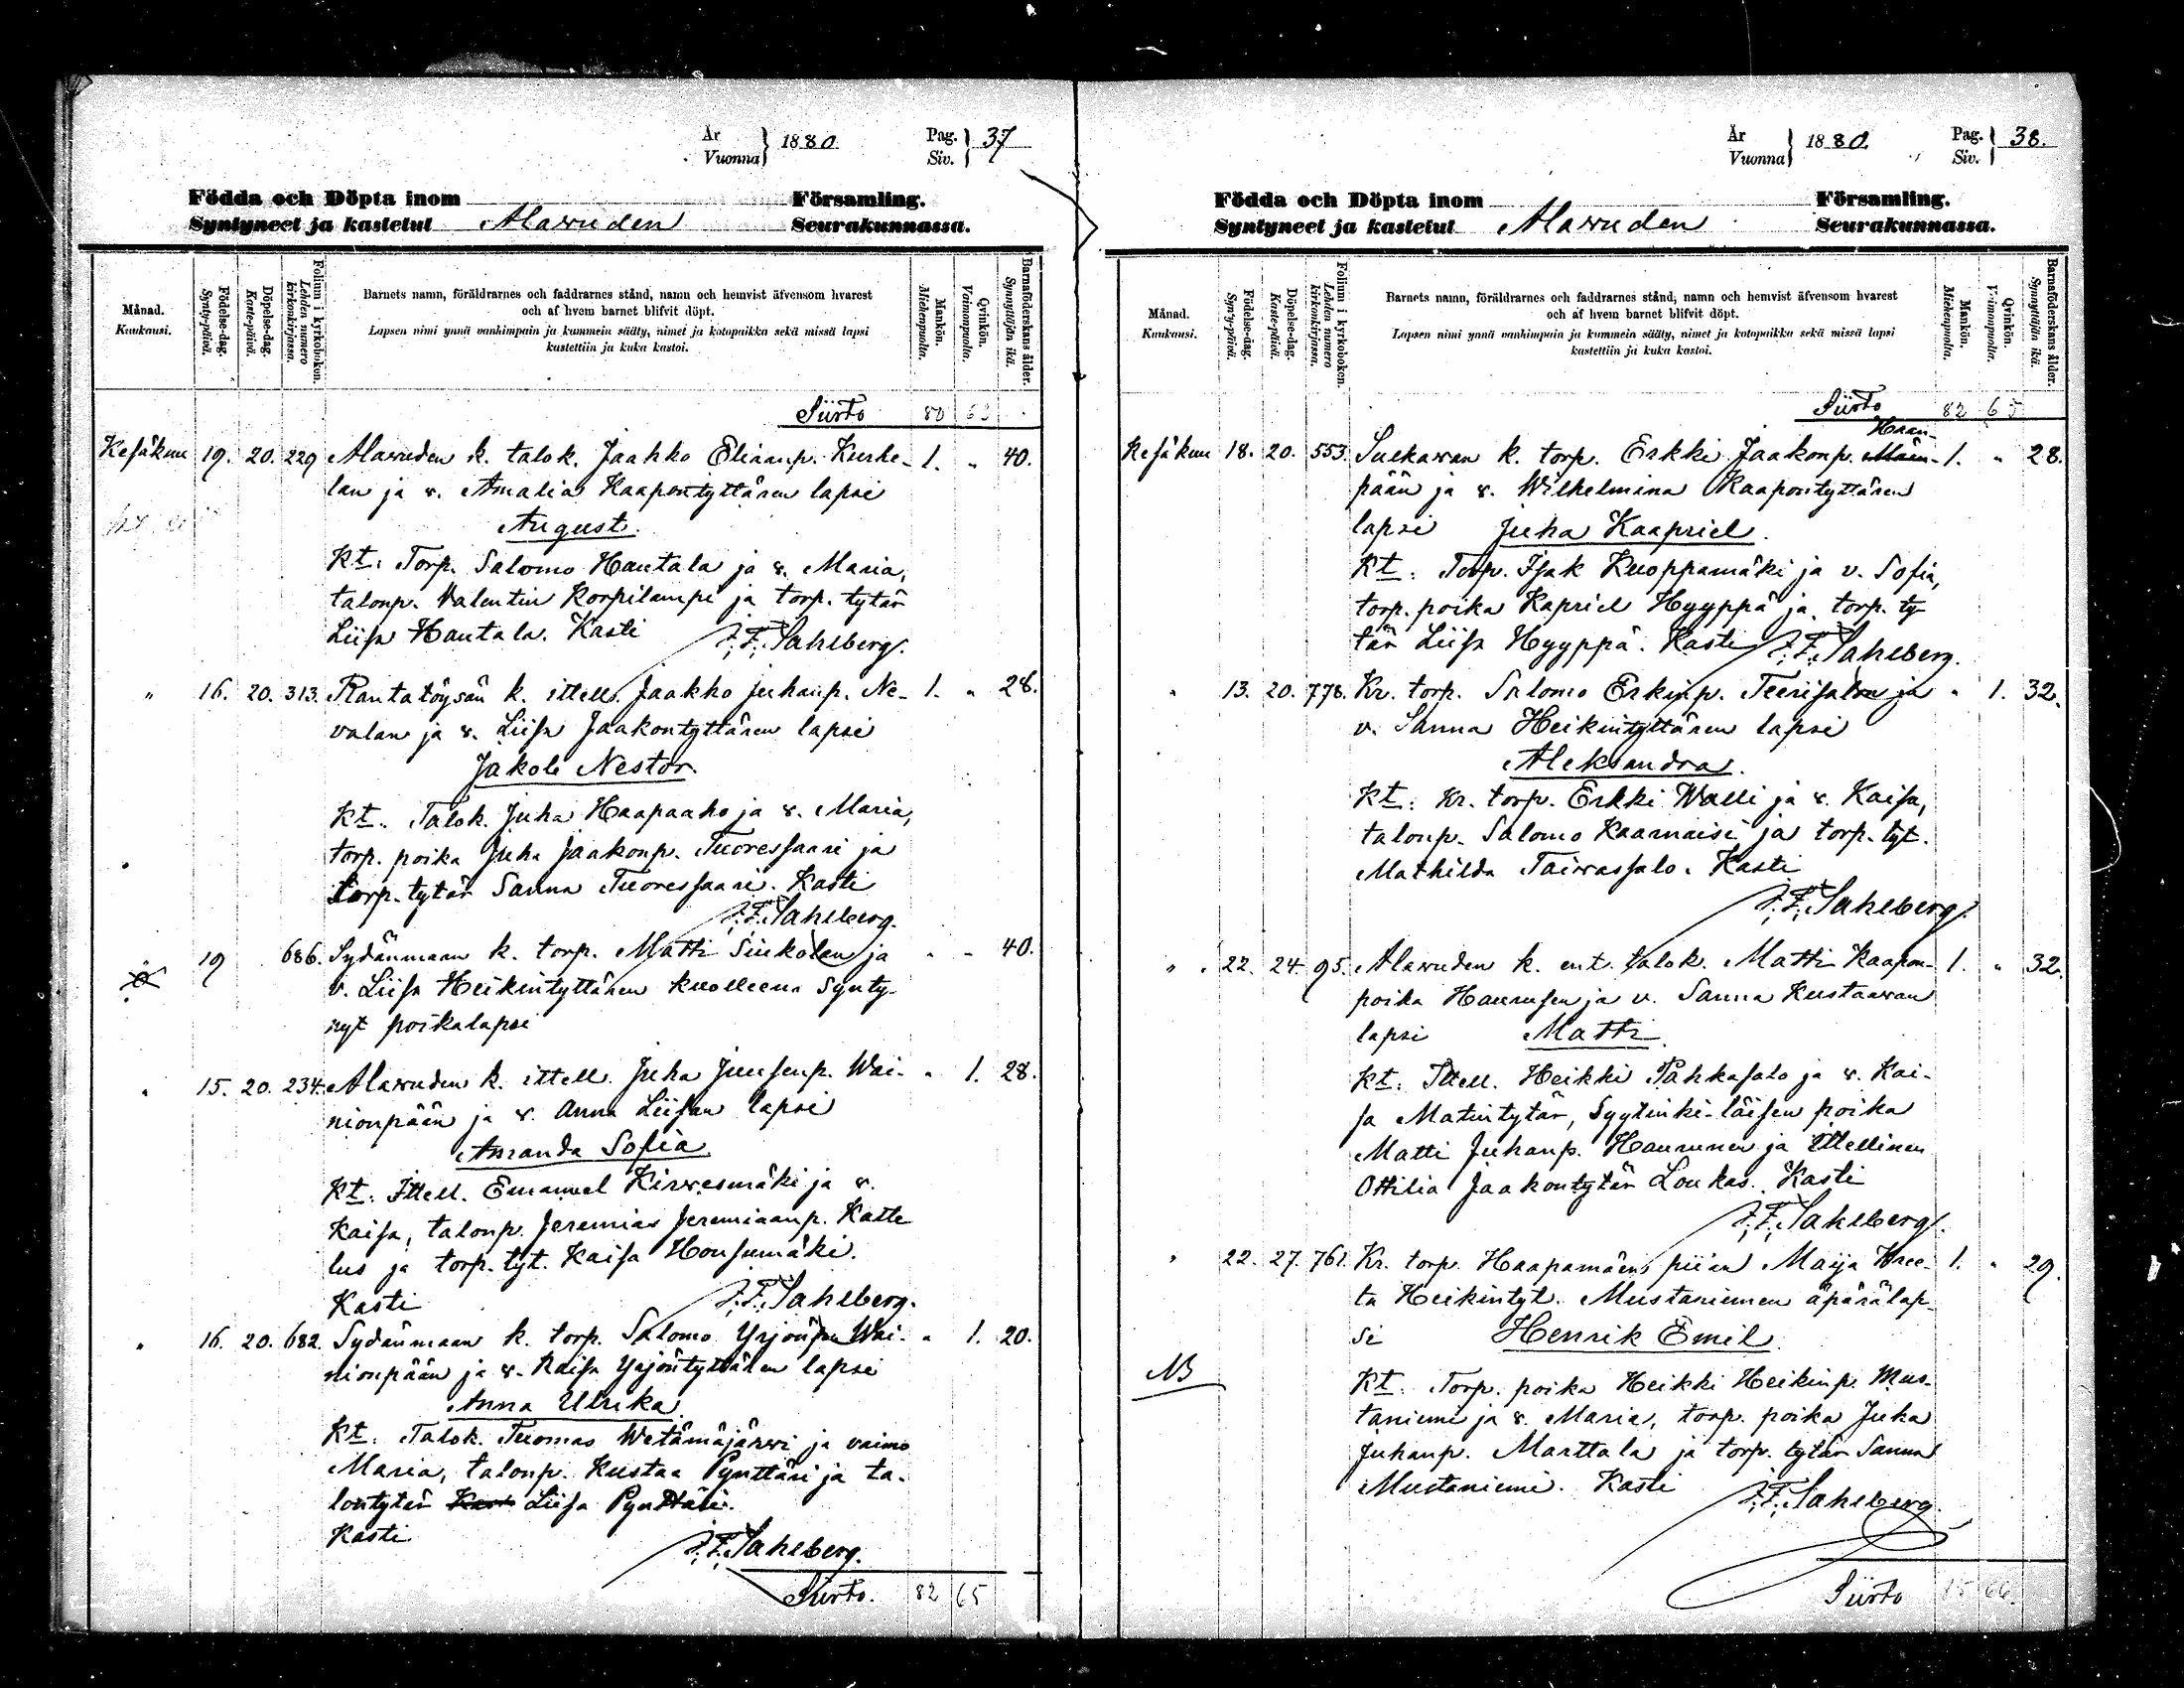 År
Vuonna } 1880. Pag.
Siv. } 37
Födda och Döpta inom Församling.
Syntyneet ja kastetut Alawuden Seurakunnassa.
Månad.
Kuukausi.
Födelse-dag.
Synty-päivä.
Döpelse-dag.
Kaste-päivä.
Folium i kyrkoboken.
Lehden numero
kirkonkirjassa.
Barnets namn, föräldrarnes och faddrarnes stånd, namn och hemvist äfvensom hvarest
och af hvem barnet blifvit döpt.
Lapsen nimi ynnä vanhimpain ja kummein sääty, nimet ja kotopaikka sekä missä lapsi
kastettiin ja kuka kastoi.
Mankön.
Miehenpuolta.
Qvinkön.
Vaimonpuolta.
Barnaföderskans ålder.
Synnyttäjän ikä.
Siirto 80 63
Kesäkuu 19. 20. 229 Alawuden k. talok. Jaakko Eliaanp. Kurke- 1. " 40.
lan ja v. Amalia Kaapontyttären lapsi
August.
Kt: Torp. Salomo Hautala ja v. Maria,
talonp. Valentin Korpilampi ja torp. tytär
Liisa Hautala. Kasti J. F. Sahlberg.
" 16. 20. 313. Rantatöysän k. ittell. Jaakko Juhanp. Ne- 1. " 28.
valan ja v. Liisa Jaakontyttären lapsi
Jakob Nestor.
Kt. Talok. Juha Haapaaho ja v. Maria,
torp. poika Juha Jaakonp. Tuoressaari ja
torp. tytär Sanna Tuoressaari. Kasti
J. F. Sahlberg.
19 686. Sydänmaan k. torp. Matti Siukolan ja " " 40.
v. Liisa Heikintyttären kuolleena synty-
nyt poikalapsi
" 15. 20. 234. Alawuden k. ittell. Juha Juusenp. Wai- " 1. 28.
nionpään ja v. Anna Liisan lapsi
Amanda Sofia.
Kt. Ittell. Emanuel Kirwesmäki ja v.
Kaisa, talonp. Jeremias Jeremiaanp. Katte
lus ja torp. tyt. Kaisa Honsumäki.
Kasti J. F. Sahlberg.
" 16. 20. 682. Sydänmaan k. torp. Salomo Yrjönpn Wai- " 1. 20.
nionpään ja v. Kaisa Yrjöntyttären lapsi
Anna Ulrika
Kt. Talok. Tuomas Wetämäjärwi ja vaimo
Maria, talonp. Kustaa Pynttäri ja ta-
lontytär Liisa Pynttäri.
Kasti J. F. Sahlberg.
Siirto. 82 65
År
Vuonna } 1880. Pag.
Siv. } 38.
Födda och Döpta inom Församling.
Syntyneet ja kastetut Alawuden Seurakunnassa.
Månad.
Kuukausi.
Födelse-dag.
Syn'y-päivä.
Döpelse-dag.
Kaste-päivä.
Folium i kyrkoboken.
Lehden numero
kirkonkirjassa.
Barnets namn, föräldrarnes och faddrarnes stånd, namn och hemvist äfvensom hvarest
och af hvem barnet blifvit döpt.
Lapsen nimi ynnä vanhimpain ja kummein sääty, nimet ja kotopaikka sekä missä lapsi
kastettiin ja kuka kastoi.
Mankön.
Miehenpuolta.
Qvinkön.
Vaimonpuolta.
Barnaföderskans ålder.
Synnyttäjän ikä.
Siirto 82 65
Haan-
Kesäkuu 18. 20. 553. Sulkawan k. torp. Erkki Jaakonp. Mäen- 1. " 28.
pään ja v. Wilhelmina Kaapontyttären
lapsi Juha Kaapriel.
Kt: Torp. Isak Kuoppamäki ja v. Sofia,
torp. poika Kapriel Hyyppä ja torp. ty-
tär Liisa Hyyppä. Kasti J. F. Sahlberg.
" 13. 20. 778. Kr. torp. Salomo Erkinp. Teerisalon ja " 1. 32.
v. Sanna Heikintyttären lapsi
Aleksandra.
Kt: Kr. torp. Erkki Walli ja v. Kaisa,
talonp. Salomo Kaarnaisi ja torp. tyt.
Mathilda Taiwassalo. Kasti
J. F. Sahlberg.
" 22. 24. 95. Alawuden k. ent. talok. Matti Kaapon- 1. " 32.
poika Haurusen ja v. Sanna Kustaawan
lapsi Matti.
Kt: Ittell. Heikki Pahkasalo ja v. Kai-
sa Matintytär, Syytinki-läisen poika
Matti Juhanp. Haurunen ja ittellinen
Ottilia Jaakontytär Loukas. Kasti
J. F. Sahlberg.
" 22. 27. 761. Kr. torp. Haapamäen piian Maija Kree- 1. " 29.
ta Heikintyt. Mustaniemen äpärälap-
si Henrik Emil.
NB
Kt. Torp. poika Heikki Heikinp. Mus-
taniemi ja v. Maria, torp. poika Juha
Juhanp. Marttala ja torp. tytär Sanna
Mustaniemi. Kasti J. F. Sahlberg.
Siirto 66.